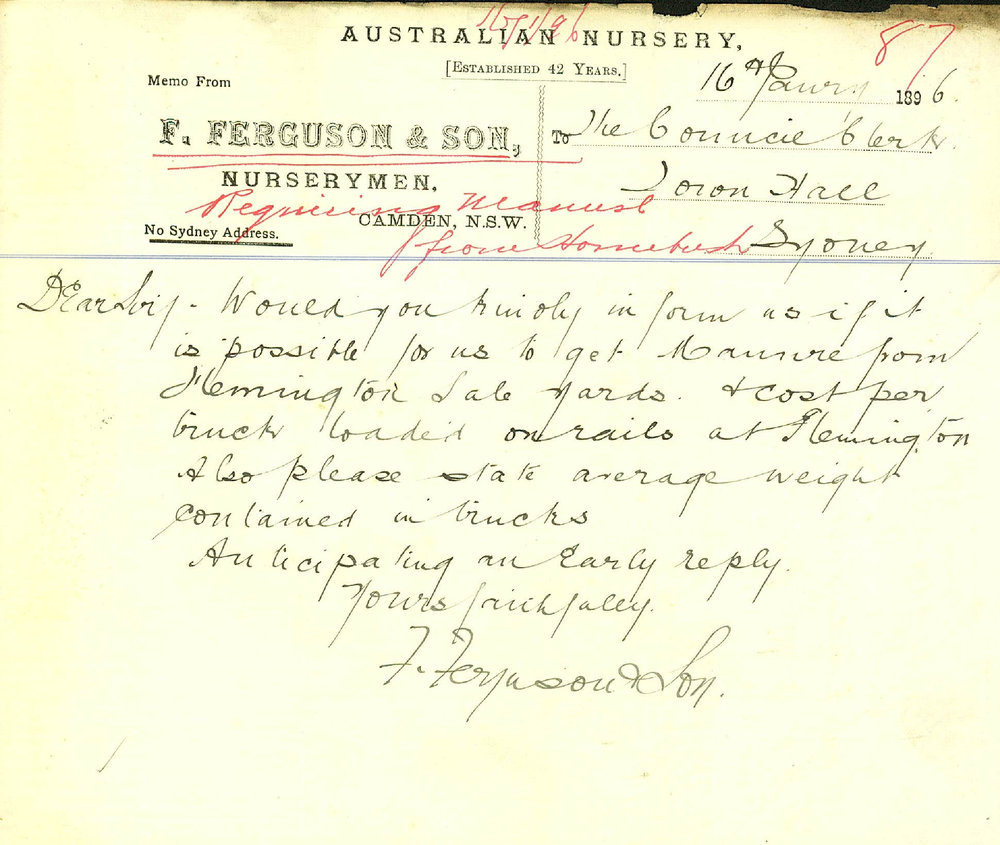 17/1/96
AUSTRALIAN NURSERY,
[ESTABLISHED 42 YEARS.]
87
Memo From
16th Janury 1896.
F. FERGUSON & SON,
To The Council Clerk.
NURSERYMEN,
Town Hall
Requiring Manure
CAMDEN, N.S.W.
No Sydney Address.
from Homebush
Sydney.
DEar Sir, - Would you kindly inform us if it
is possible for us to get Manure from
Flemington Sale yards. & cost per
truck loaded on rails at Flemington
Also please state average weight
contained in trucks
Anticipating an Early reply.
Yours faithfully.
F. Ferguson & Son.